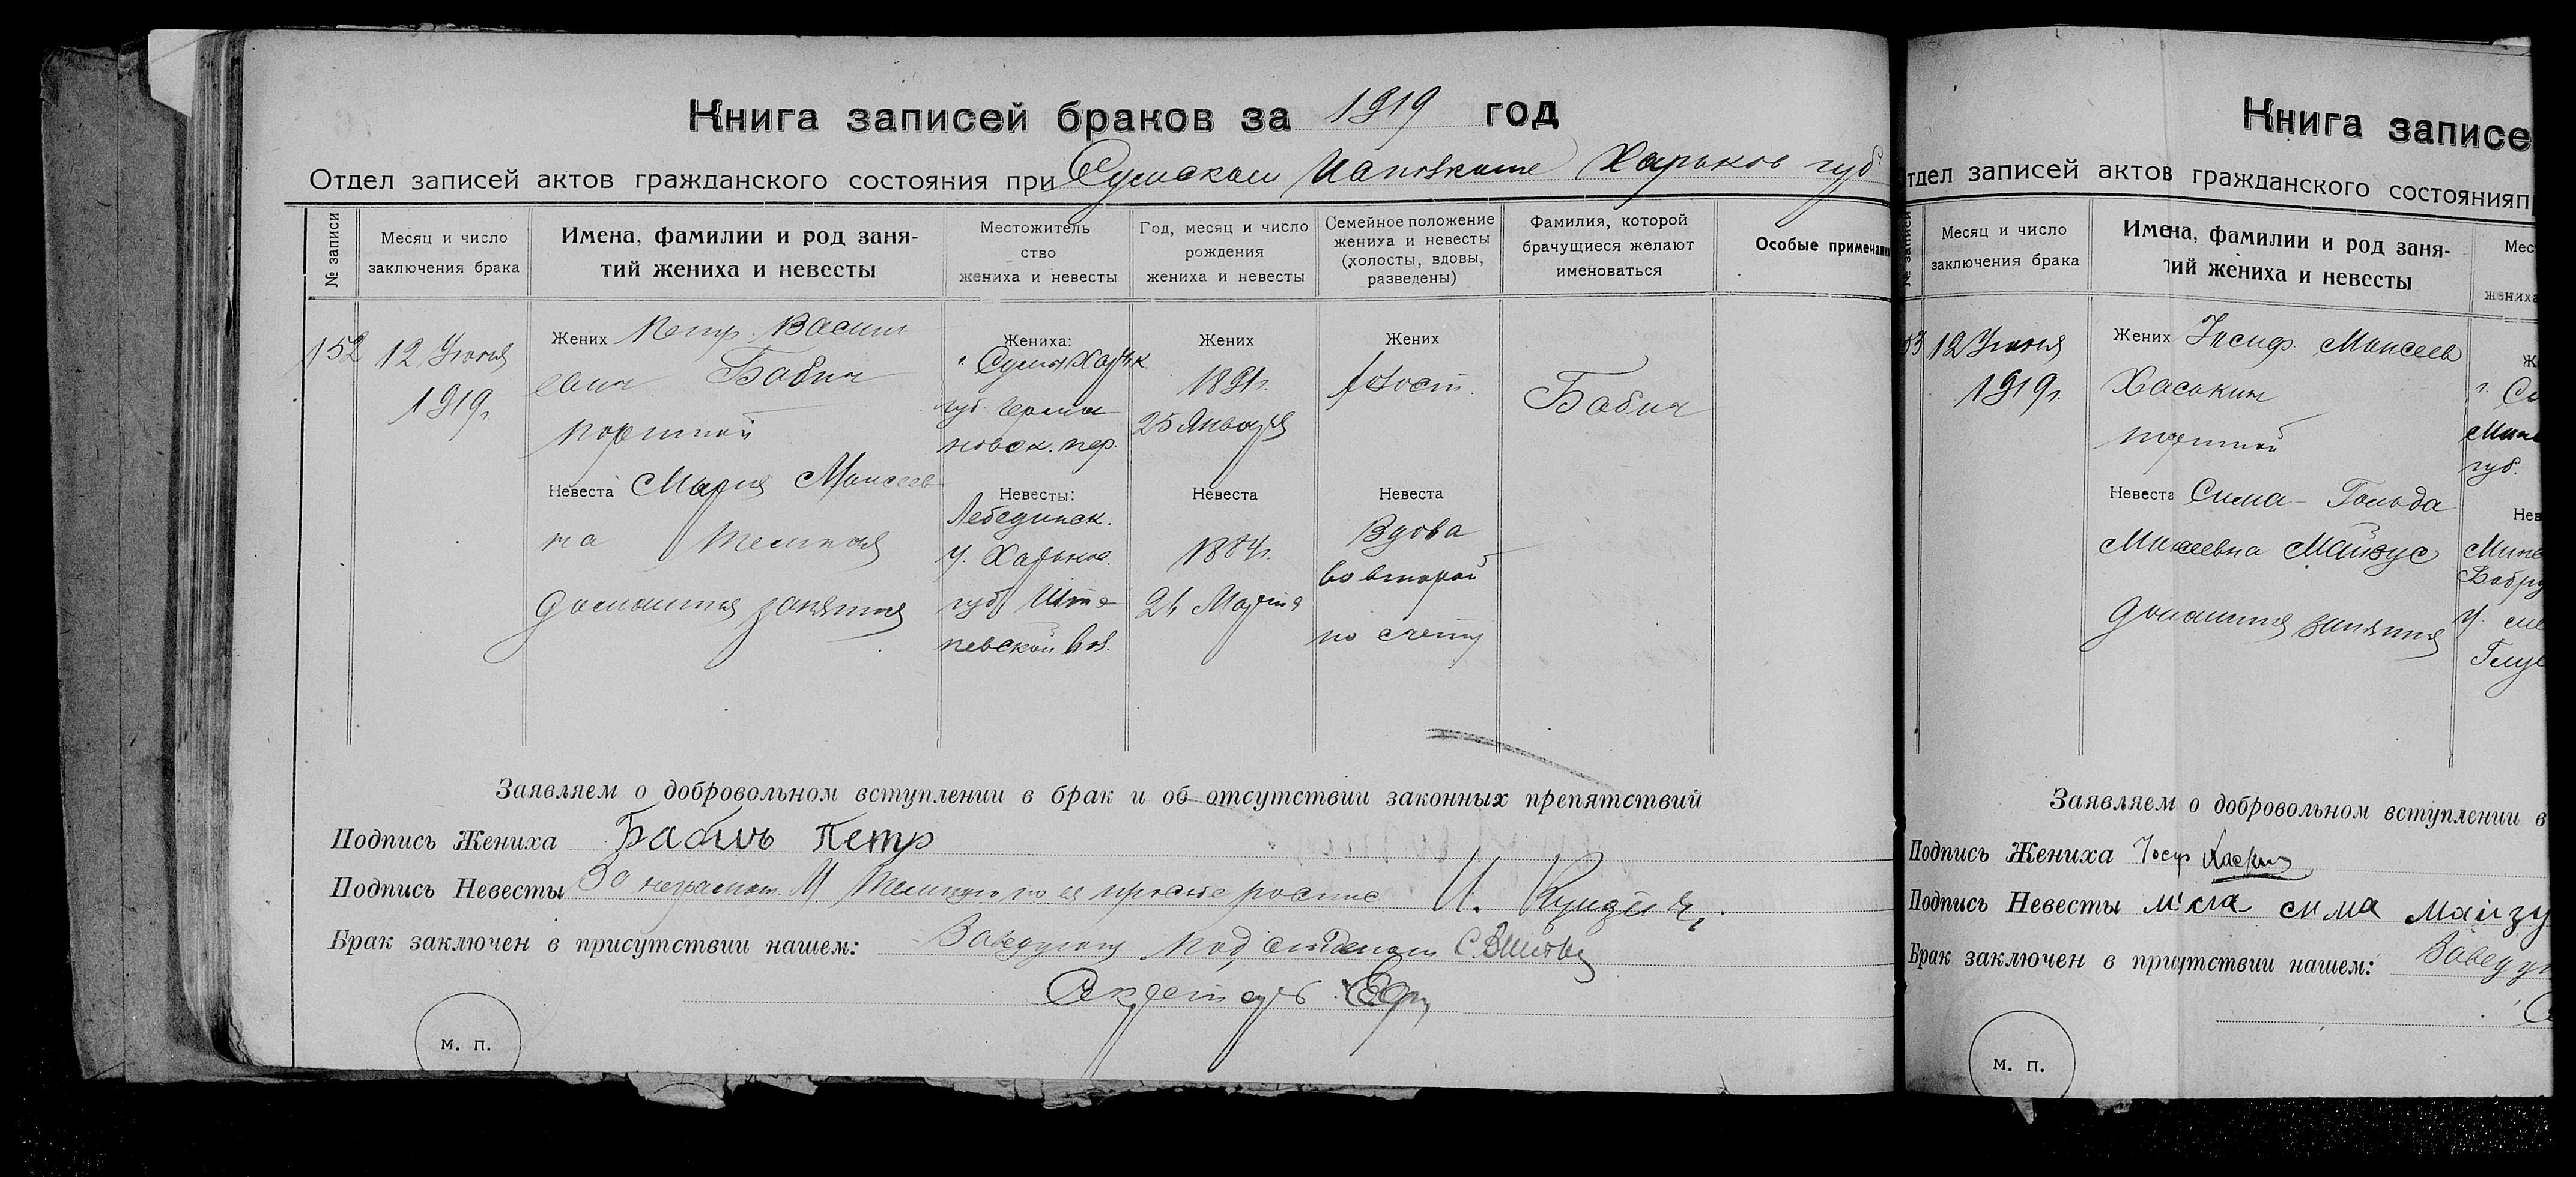 Книга записей браков за 1919 год
Отдел записей актов гражданского состояния при Сумском Исполкоме Харьков губ
№ записи
Месяц и число
заключения брака
Имена, фамилии и род заня-
тий жениха и невесты
Местожитель
ство
жениха и невесты
Год, месяц и число
рождения
жениха и невесты
Семейное положение
жениха и невесты
(холосты, вдовы,
разведены)
Фамилия, которой
брачущиеся желают
именоваться
Особые примечани
152
12 Июня
1919г.
Жених Петр Васил
евич Бабич
портной
Невеста Мария Моисеев
на
домашния занятия
Жениха:
г. Сумы Харьк.
губ.
новск. пер.
Невесты:
Лебединск.
у. Харьков.
губ. Ште
певской вол.
Жених
1891г.
25 Января
Невеста
1884г.
21 Марта
Жених
холост.
Невеста
Вдова
во второй
по счету
Бабич
Заявляем о добровольном вступлении в брак и об отсутствии законных препятствий
Подпись Жениха Бабичъ Петр
Подпись Невесты За неграмот. М по ея просьбе роспис И.
Брак заключен в присутствии нашем: Заведующ под отделом
Секретарь
м. п.
Книга записе
тдел записей актов гражданского состоянияп
№ записи
Месяц и число
заключения брака
Имена, фамилии и род заня-
тий жениха и невесты
Мес
жениха
53
12 Июня
1919г.
Жених Иосиф Моисеев
Хаськин
портной
Невеста Сима - Гольда
Моисеевна Майзус
домашния занятия
Ж
г. Су
губ.
Нев
Минс
Бобру
у.
Глус
Заявляем о добровольном вступлении в
Подпись Жениха Иосиф Хаскин
Подпись Невесты сима майзу
Брак заключен в присутствии нашем: Заведу
С
м. п.